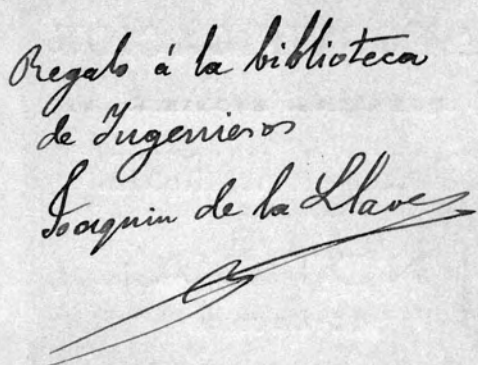 Regalo á la biblioteca
de Ingenieros
Joaquin de la Llave